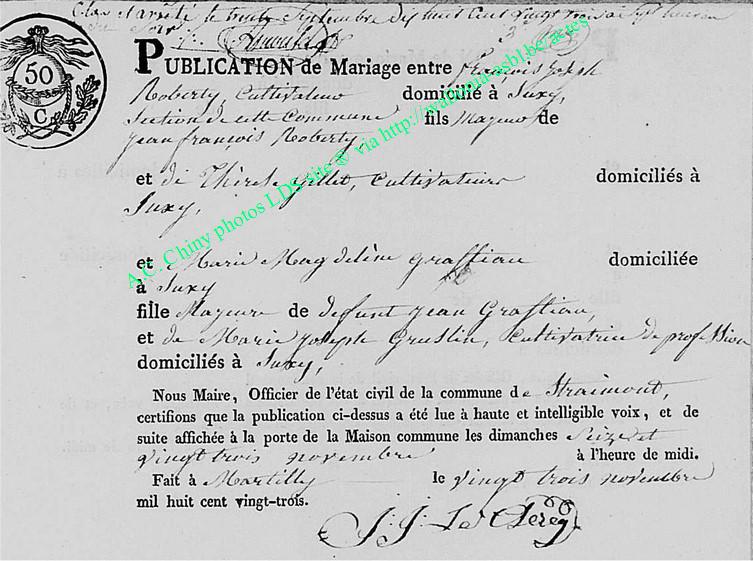 Clos et arrêté le trente Septembre dix huit Cent Vingt trois à Sept heures
du Soir
50
C
PUBLICATION de Mariage entre François Joseph
Roberty, Cultivateur domicilié à Suxy,
Section de cette Commune fils Majeur de
Jean François Roberty,
et de Thérese Gillet, Cultivateurs domiciliés à
Suxy,
et Marie Magdelène Grastiau domiciliée
à Suxy
fille Majeure de defunt Jean Grastiau,
et de Marie Joseph Gruslin, Cultivatrice de profession
domiciliés à Suxy,
Nous Maire, Officier de l'état civil de la commune de Straimont,
certifions que la publication ci-dessus a été lue à haute et intelligible voix, et de
suite affichée à la porte de la Maison commune les dimanches Seize et
vingt trois novembre à l'heure de midi.
Fait à Martilly le vingt trois novembre
mil huit cent vingt-trois.
J: J: Le Clerc
A.C. Chiny photos LDS site ® via http://wallonia-asbl.be/actes